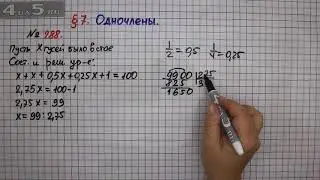 4 5.ru
§7. Одночлены.
№ 288.
Пусть X гусей было в стае
Сост. и реш. ур-е.
x + x + 0,5x + 0,25x + 1 = 100
2,75x = 100-1
2,75x = 99
x = 99 : 2,75
1/2 = 0,5 1/4 = 0,25
9900 275
825 3
1650